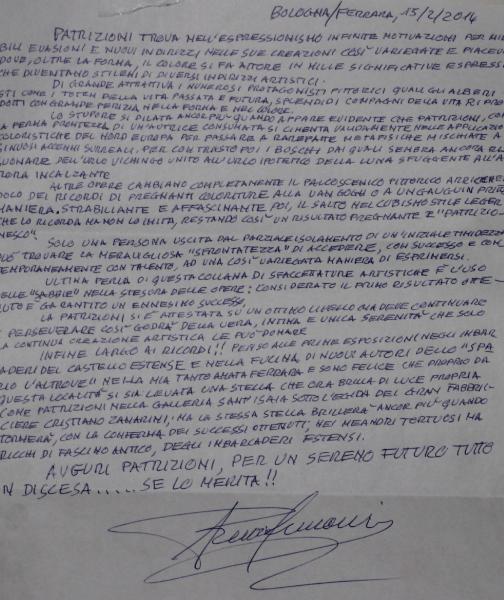 BOLOGNA/FERRARA, 15/2/2014
PATRIZIONI TROVA NELL'ESPRESSIONISMO INFINITE MOTIVAZIONI PER
BILI EVASIONI E NUOVI INDIRIZZI, NELLE SUE CREAZIONI COSÌ VARIEGATE E PIACEVO
DOVE, OLTRE LA FORMA, IL COLORE SI FA ATTORE IN MILLE SIGNIFICATIVE ESPRESSI
CHE DIVENTANO STILEMI DI DIVERSI INDIRIZZI ARTISTICI.
DI GRANDE ATTRATTIVA I NUMEROSI PROTAGONISTI PITTORICI QUALI GLI ALBERI
STI COME I TOTEM DELLA VITA PASSATA E FUTURA, SPLENDIDI COMPAGNI DELLA VITA
DOTTI CON GRANDE PERIZIA NELLA FORMA E NEL COLORE.
LO STUPORE SI DILATA ANCOR PIÙ QUANDO APPARE EVIDENTE CHE PATRIZIONI, CON
LA FERMA PRONTEZZA DI UN'AUTRICE CONSUMATA SI CIMENTA VALIDAMENTE NELLE APPLICAZIO
COLORISTICHE DEL NORD EUROPA PER PASSARE A RAREFATTE METAFISICHE MISCHIATE A
SINUOSI ACCENNI SURREALI. PER CONTRASTO POI I BOSCHI DAI QUALI SEMBRA ANCORA
SUONARE DELL'URLO VICHINGO UNITO ALL'URLO IPOTETICO DELLA LUNA SFUGGENTE ALL'A
RORA INCALZANTE.
ALTRE OPERE CAMBIANO COMPLETAMENTE IL PALCOSCENICO PITTORICO
DOLO DEI RICORDI DI PREGNANTI COLORITURE ALLA VAN GOGH O A UN GAUGUIN PRIMA
MANIERA, STRABILIANTE E AFFASCINANTE, POI, IL SALTO NEL CUBISMO STILE LEGER
CHE LO RICORDA MA NON LO IMITA, RESTANDO COSÌ UN RISULTATO PREGNANTE E "PATRIZIO-
NESCO".
SOLO UNA PERSONA USCITA DAL PARZIALE ISOLAMENTO DI UN'INIZIALE TIMIDEZZA
PUÒ TROVARE LA MERAVIGLIOSA "SFRONTATEZZA" DI ACCEDERE, CON SUCCESSO E CON
TEMPORANEAMENTE CON TALENTO, AD UNA COSÌ VARIEGATA MANIERA DI ESPRIMERSI.
ULTIMA PERLA DI QUESTA COLLANA DI SFACCETTATURE ARTISTICHE È L'USO
DELLE "SABBIE" NELLA STESURA DELLE OPERE: CONSIDERATO IL PRIMO RISULTATO OTTE-
NUTO È GARANTITO UN ENNESIMO SUCCESSO.
LA PATRIZIONI SI È ATTESTATA SU UN OTTIMO LIVELLO MA DEVE CONTINUARE
E PERSEVERARE COSÌ GODRÀ DELLA VERA, INTIMA E UNICA SERENITÀ CHE SOLO
LA CONTINUA CREAZIONE ARTISTICA LE PUÒ DONARE
INFINE LARGO AI RICORDI!! PENSO ALLE PRIME ESPOSIZIONI NEGLI IMBAR
CADERI DEL CASTELLO ESTENSE E NELLA FUCINA DI NUOVI AUTORI DELLO "SPA
ZIO L'ALTROVE" NELLA MIA TANTO AMATA FERRARA E SONO FELICE CHE PROPRIO DA
QUESTA LOCALITÀ SI SIA LEVATA UNA STELLA CHE ORA BRILLA DI LUCE PROPRIA
COME PATRIZIONI NELLA GALLERIA SANT'ISAIA SOTTO L'EGIDA DEL GRAN FABBRI-
CIERE CRISTIANO ZANARINI; MA LA STESSA STELLA BRILLERÀ ANCOR PIÙ QUANDO
TORNERÀ, CON LA CONFERMA DEI SUCCESSI OTTENUTI, NEI MEANDRI TORTUOSI MA
RICCHI DI FASCINO ANTICO, DEGLI IMBARCADERI ESTENSI.
AUGURI PATRIZIONI, PER UN SERENO FUTURO TUTTO
IN DISCESA..... SE LO MERITA!!